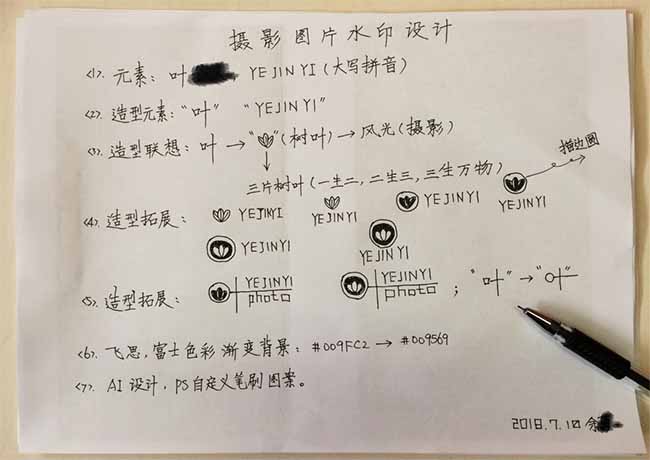 摄影图片水印设计
<1>. 元素: 叶 YEJINYI (大写拼音)
<2>. 造型元素: "叶" "YEJINYI"
<3>. 造型联想: 叶 → " " (树叶) → 风光 (摄影)
三片树叶 (一生二, 二生三, 三生万物)
拍边圆
<4>. 造型拓展: YEJINYI YEJINYI YEJINYI YEJINYI
YEJINYI YEJINYI
<5>. 造型拓展: YEJINYI photo YEJINYI photo ; "叶" → "叶"
<6>. 飞思, 富士色彩渐变背景: #009FC2 → #009569
<7>. AI设计, PS自定义笔刷图案。
2018.7.10 余